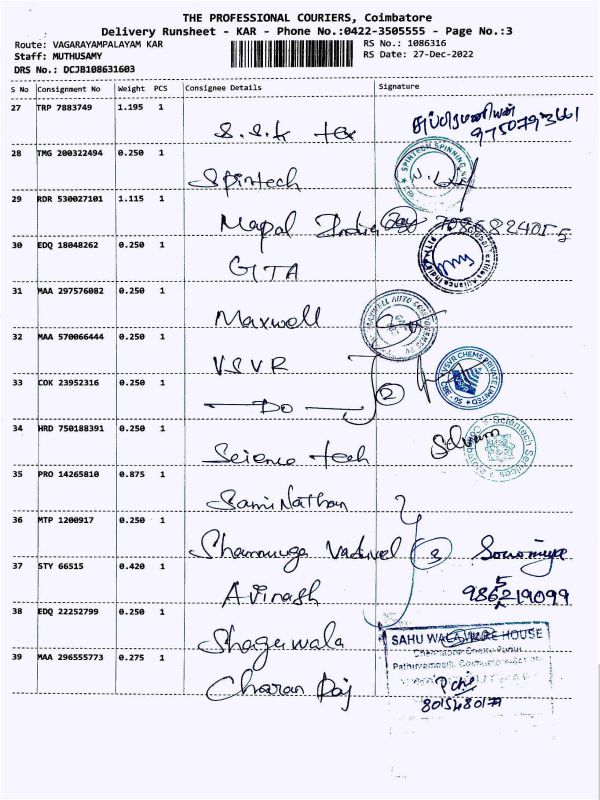 THE PROFESSIONAL COURIERS, Coimbatore
Delivery Runsheet - KAR - Phone No.:0422-3505555 - Page No.:3
Route: VAGARAYAMPALAYAM KAR
RS No.: 1086316
Staff: MUTHUSAMY
RS Date: 27-Dec-2022
DRS No.: DCJB108631603
S No Consignment No Weight PCS Consignee Details Signature
27 TRP 7883749 1.195 1
S.S.K tex
சுப்பிரமணியன்
28 TMG 200322494 0.250 1
Spintech
SPINTECH SPINNING
29 RDR 530027101 1.115 1
Mapal India
30 EDQ 18048262 0.250 1
GITA
31 MAA 297576082 0.250 1
Maxwell
MAXWELL AUTO COMPONENTS
32 MAA 570066444 0.250 1
VSVR
VSVR CHEMS PRIVATE LIMITED
33 COK 23952316 0.250 1
DO
2
34 HRD 750188391 0.250 1
Science tech
Selvam
Scientech Services
35 PRO 14265810 0.875 1
Sami Nathan
36 MTP 1200917 0.250 1
Shanmuga Vadivel
3
Sowmiya
37 STY 66515 0.420 1
Avinash
38 EDQ 22252799 0.250 1
Shagerwala
SAHU WALA HOUSE
39 MAA 296555773 0.275 1
Charan Raj